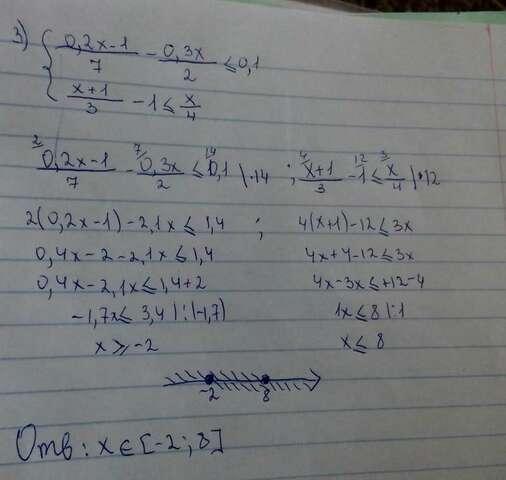 3) { (0,2x-1)/7 - 0,3x/2 ≤ 0,1
(x+1)/3 - 1 ≤ x/4
2 7 14 4 12 3
(0,2x-1)/7 - 0,3x/2 ≤ 0,1 | ·14 ; (x+1)/3 - 1 ≤ x/4 | ·12
2(0,2x-1) - 2,1x ≤ 1,4 ; 4(x+1)-12 ≤ 3x
0,4x - 2 - 2,1x ≤ 1,4 4x+4-12 ≤ 3x
0,4x - 2,1x ≤ 1,4+2 4x-3x ≤ +12-4
-1,7x ≤ 3,4 | :(-1,7) 1x ≤ 8 |:1
x ≥ -2 x ≤ 8
-2 8
Отв: x ∈ [-2; 8]